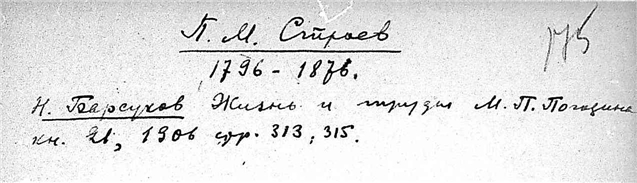 П. М. Строев
1796 - 1876.
Н. Барсуков Жизнь и труды М. П. Погодина
кн. 21, 1906 стр. 313, 315.